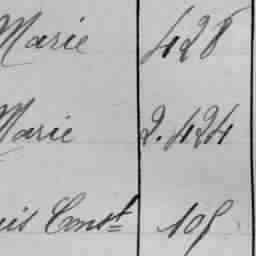 Marie 428
Marie 2.424
uis Const 105